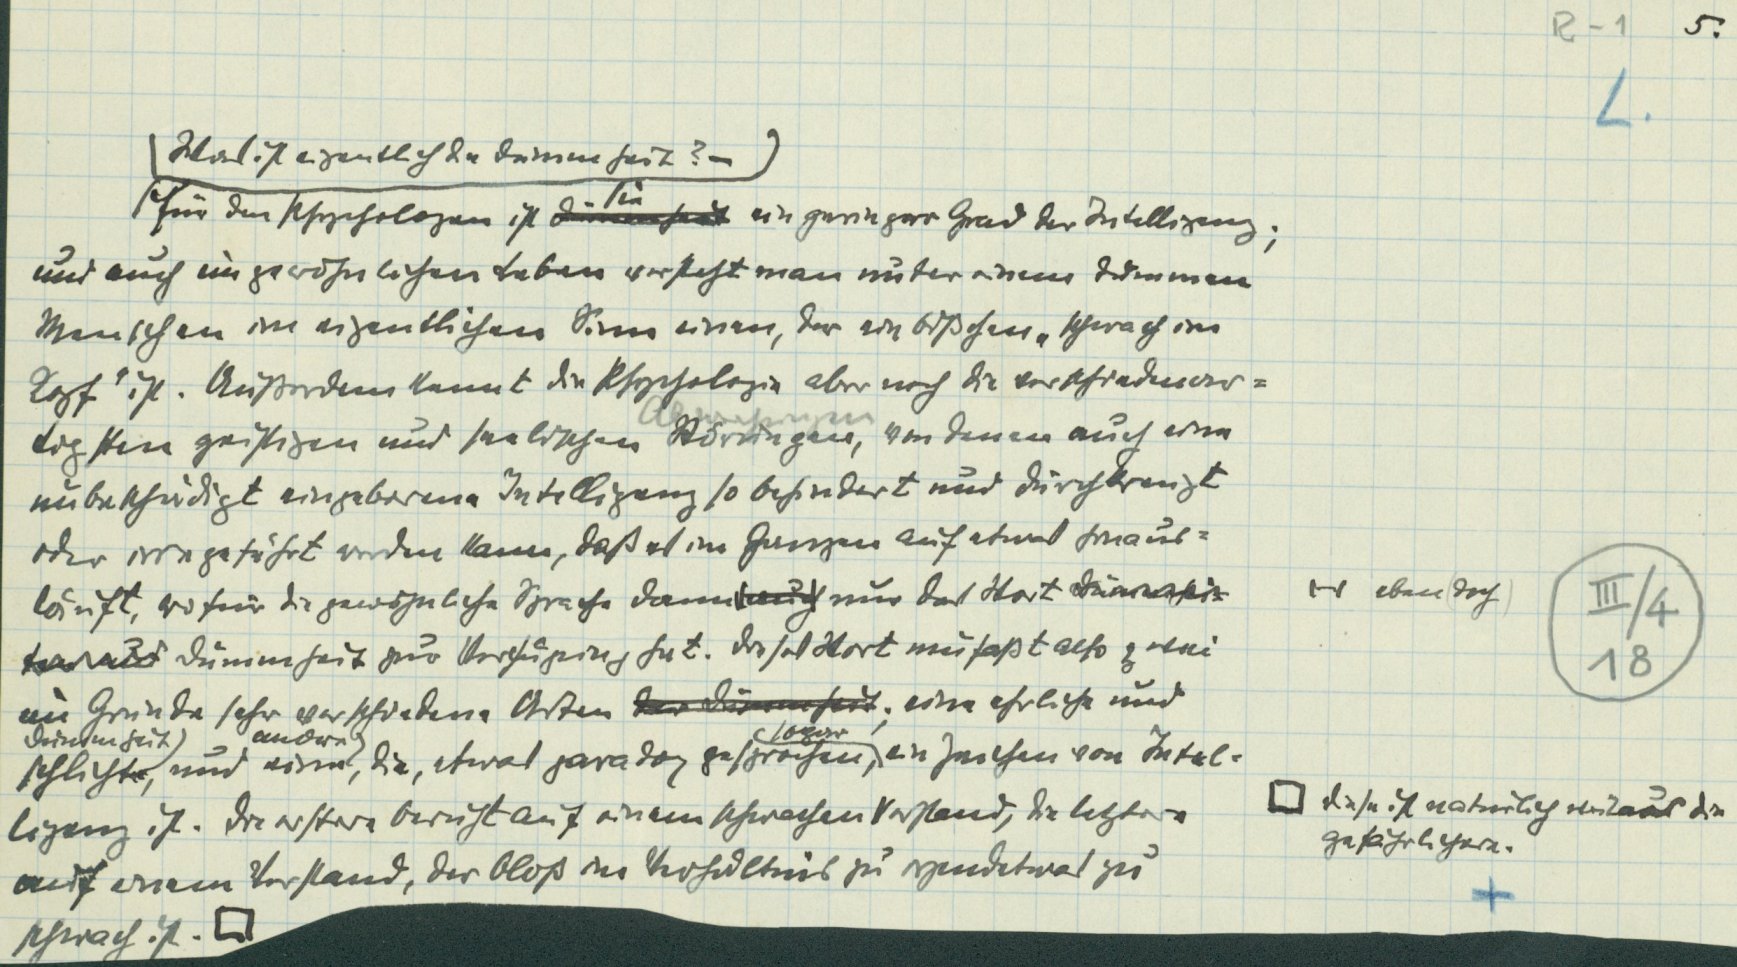 R-1 5.
L.
Was ist eigentlich die Dummheit? –
Für den Psychologen ist Dummheit sie ein geringerer Grad der Intelligenz;
und auch im gewöhnlichen Leben versteht man unter einem dummen
Menschen im eigentlichen Sinn einen, der ein bißchen „schwach im
Kopf“ ist. Außerdem kennt die Psychologie aber noch die verschiedenar=
tigsten geistigen und seelischen Störungen, von denen auch eine
Abweichungen
unbeschädigt eingeborene Intelligenz so behindert und durchkreuzt
oder irregeführt werden kann, daß es im Ganzen auf etwas hinaus=
läuft, wofür die gewöhnliche Sprache dann auch nur das Wort
Dummheit zur Verfügung hat. Dieses Wort umfaßt also zwei
im Grunde sehr verschiedene Arten der Dummheit; eine ehrliche und
Dummheit) andre sogar
schlichte, und eine, die, etwas paradox gesprochen, ein Zeichen von Intel=
ligenz ist. Die erstere beruht auf einem schwachen Verstand, die letztere
auf einem Verstand, der bloß im Verhältnis zu irgendetwas zu
schwach ist. □
eben (doch)
III/4
18
□ diese ist natürlich weitaus die
gefährlichere.
+